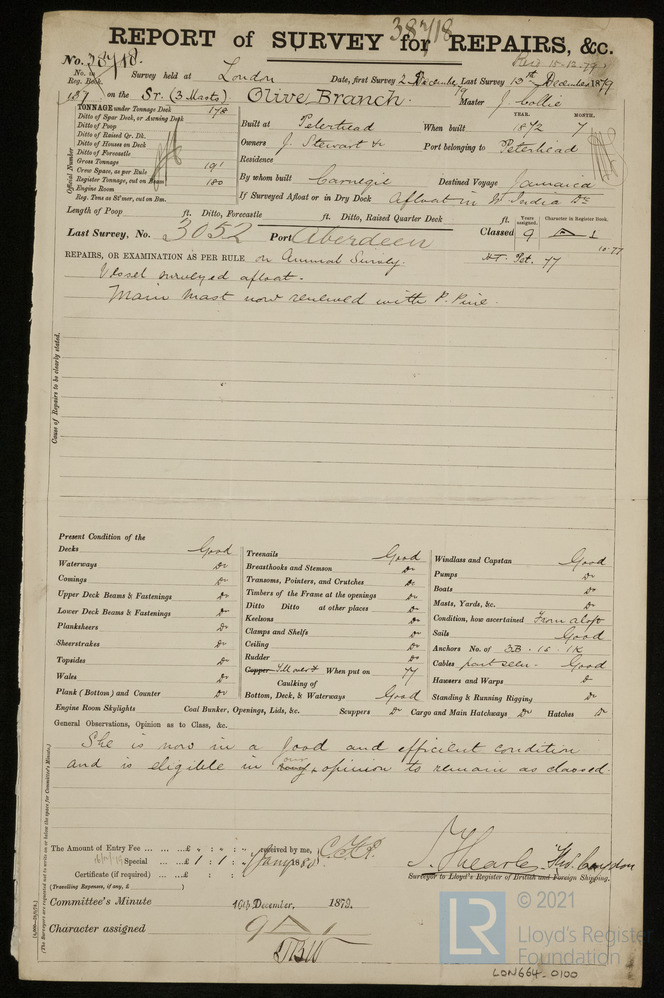 38718
REPORT of SURVEY for REPAIRS, &c.
No. 38718. Rec 15-12-79
No. in Reg. Book. Survey held at London Date, first Survey 2 Decembr Last Survey 13th December 1879
157 on the Sr. (3 Masts) Olive Branch. Master J Collie
TONNAGE under Tonnage Deck 178
Ditto of Spar Deck, or Awning Deck
Ditto of Poop
Ditto of Raised Qr. Dk.
Ditto of Houses on Deck
Ditto of Forecastle
Gross Tonnage 191
Crew Space, as per Rule
Register Tonnage, cut on Beam 180
Engine Room
Reg. Tons as St'mer, cut on Bm.
Official Number
YEAR. MONTH.
Built at Peterhead When built 1872 7
Owners J. Stewart &c Port belonging to Peterhead
Residence
By whom built Carnegie Destined Voyage Jamaica
If Surveyed Afloat or in Dry Dock Afloat in W India Dk
Length of Poop ft. Ditto, Forecastle ft. Ditto, Raised Quarter Deck ft. Years assigned. Character in Register Book.
Last Survey, No. 3052 Port Aberdeen Classed 9 A 1
10-77
REPAIRS, OR EXAMINATION AS PER RULE on Annual Survey. Pst. 77
Vessel surveyed afloat.
Main Mast now renewed with P. Pine.
Cause of Repairs to be clearly stated.
Present Condition of the
Decks Good
Waterways Do
Comings Do
Upper Deck Beams & Fastenings Do
Lower Deck Beams & Fastenings Do
Planksheers Do
Sheerstrakes Do
Topsides Do
Wales Do
Plank (Bottom) and Counter Do
Treenails Good
Breasthooks and Stemson Do
Transoms, Pointers, and Crutches Do
Timbers of the Frame at the openings Do
Ditto Ditto at other places Do
Keelsons Do
Clamps and Shelfs Do
Ceiling Do
Rudder Do
Copper When put on 77
Caulking of
Bottom, Deck, & Waterways Good
Windlass and Capstan Good
Pumps Do
Boats Do
Masts, Yards, &c. Do
Condition, how ascertained From aloft
Sails Good
Anchors No. of 3B. 1S. 1K
Cables part seen. Good
Hawsers and Warps Do
Standing & Running Rigging Do
Engine Room Skylights Coal Bunker, Openings, Lids, &c. Scuppers Do Cargo and Main Hatchways Do Hatches Do
General Observations, Opinion as to Class, &c.
She is now in a good and efficient condition
and is eligible in our opinion to remain as classed.
(The Surveyors are requested not to write on or below the space for Committee's Minute.)
The Amount of Entry Fee ... £ : : received by me,
Special ... £ 1 : 1 : Jany 1880
Certificate (if required) ... £ : :
(Travelling Expenses, if any, £ )
J. Hearle
Surveyor to Lloyd's Register of British and Foreign Shipping.
Committee's Minute 16th December, 1879.
Character assigned 9 A 1
© 2021
LR Lloyd's Register
Foundation
LDN664-0100